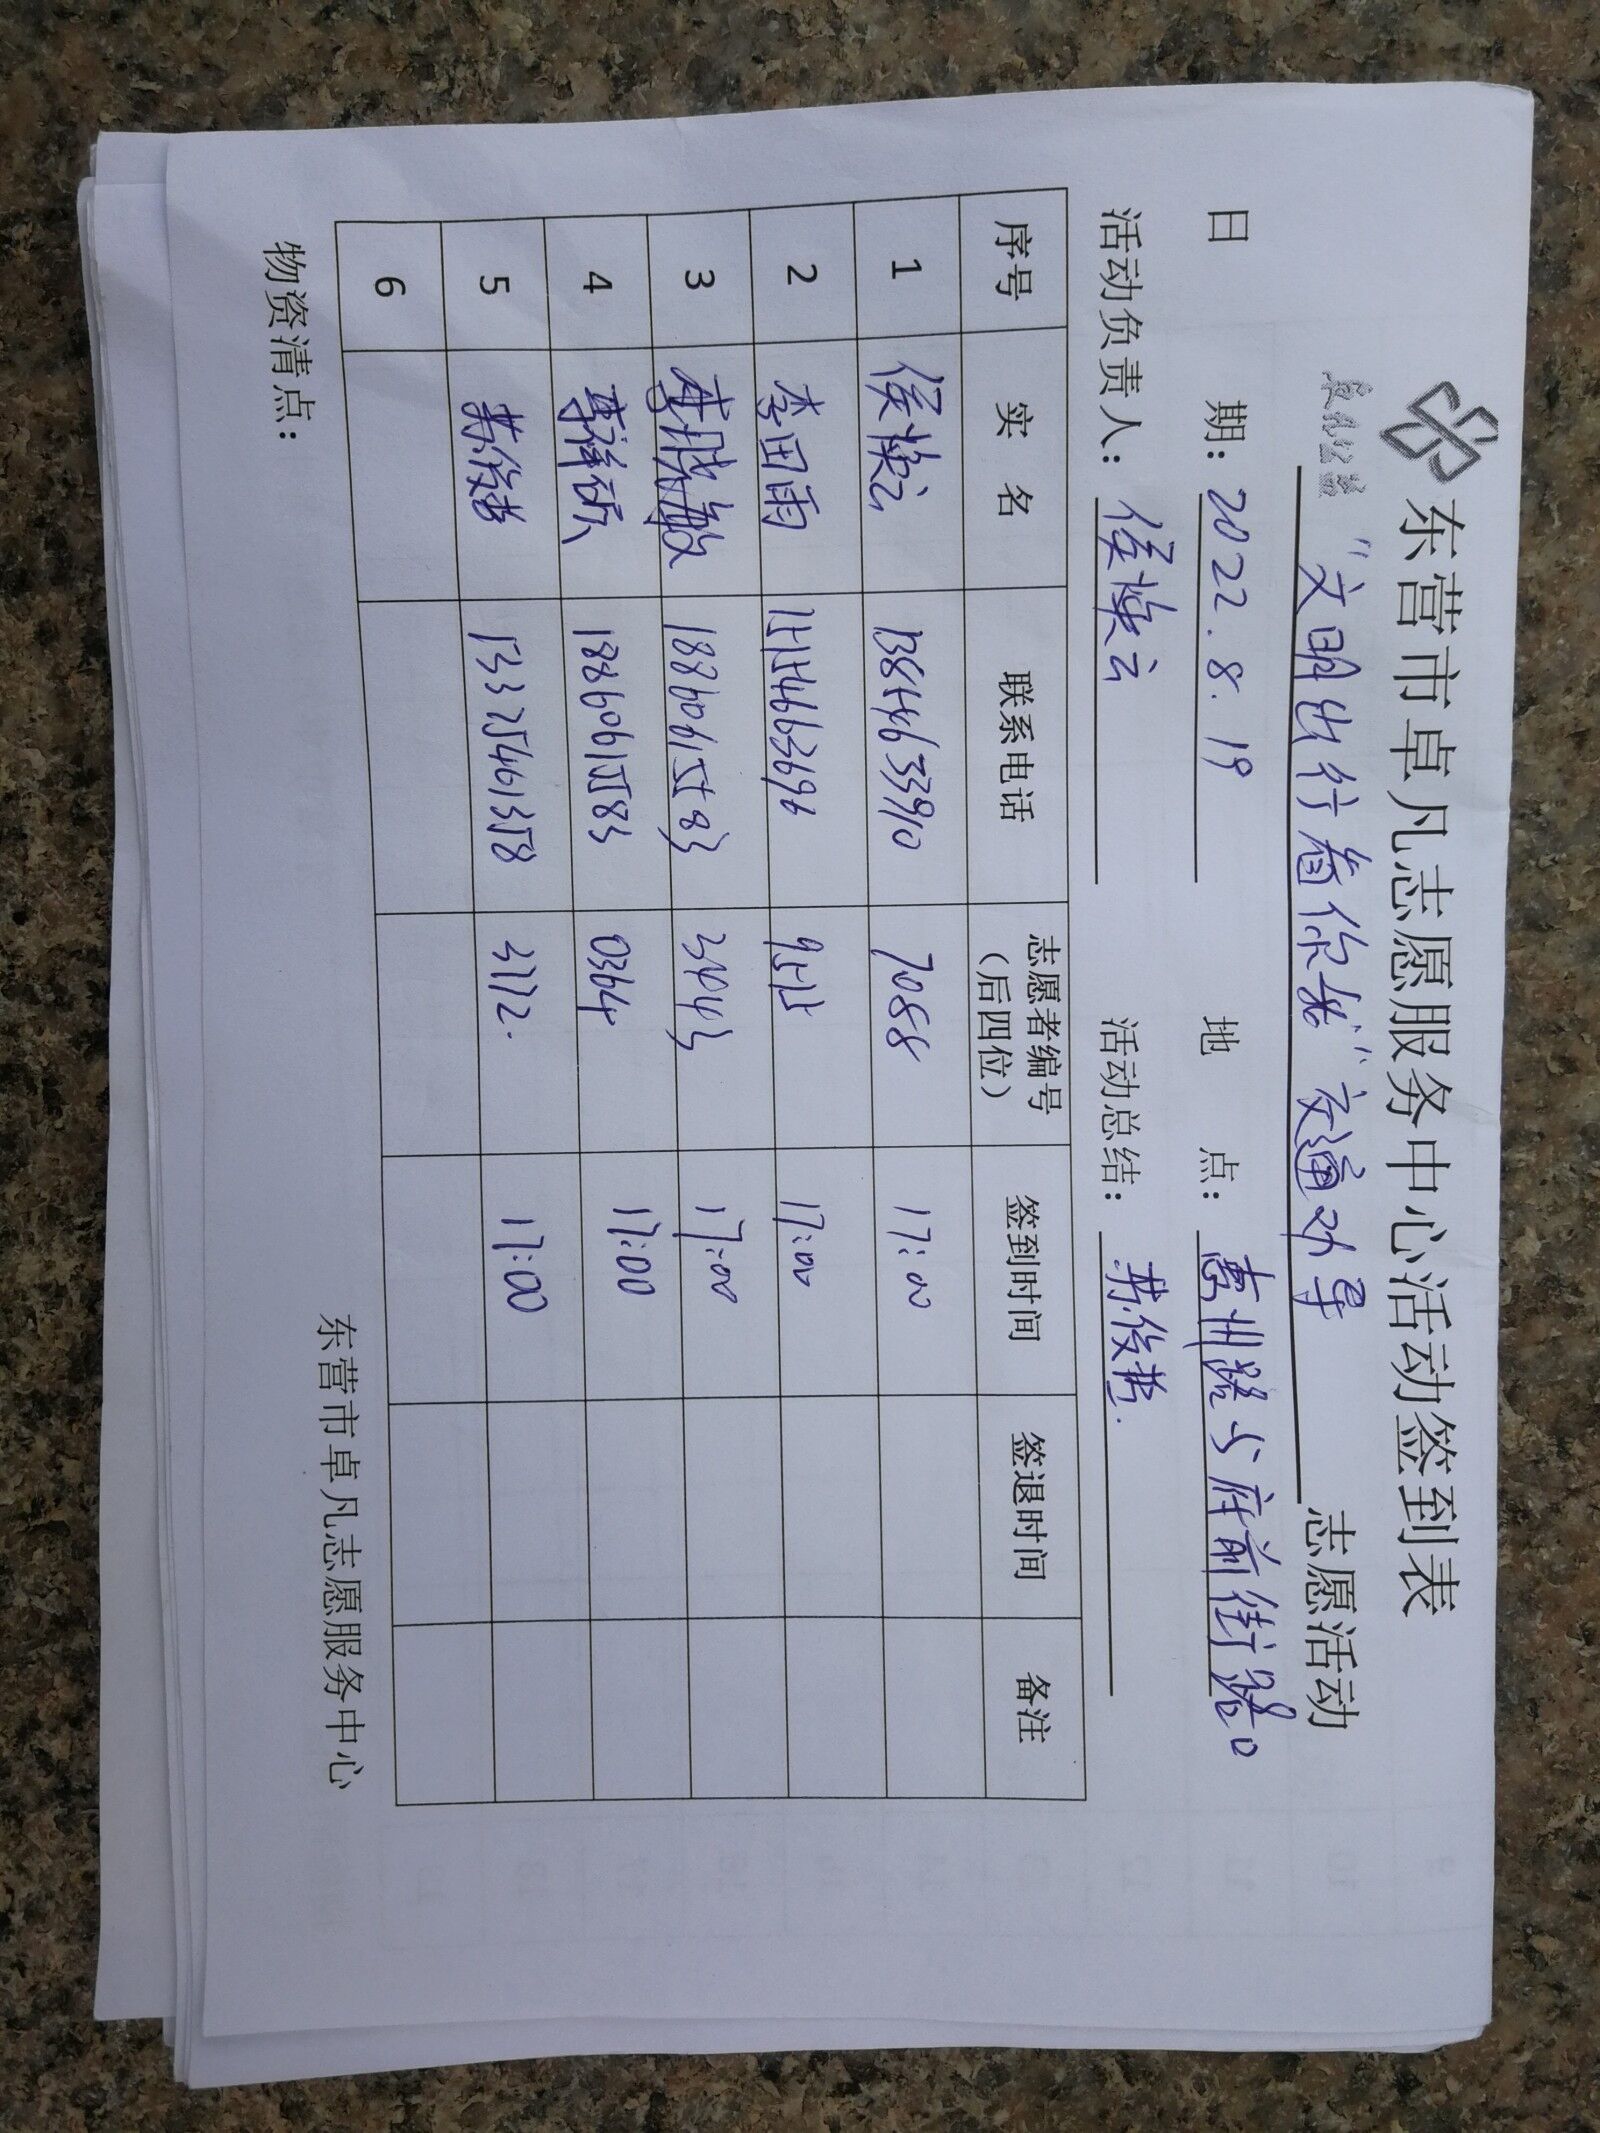 卓凡公益
东营市卓凡志愿服务中心活动签到表
“文明出行 看你我”交通劝导 志愿活动
日 期：2022.8.19 地 点：惠州路与府前街路口
活动负责人：侯焕云 活动总结：苏俊哲.
序号 实 名 联系电话 志愿者编号（后四位） 签到时间 签退时间 备注
1 侯焕云 13854633910 7088 17:00
2 李田雨 15154663696 9515 17:00
3 18860615583 3404 17:00
4 18860615583 0364 17:00
5 苏俊哲 15325461358 3112. 17:00
6
物资清点：
东营市卓凡志愿服务中心